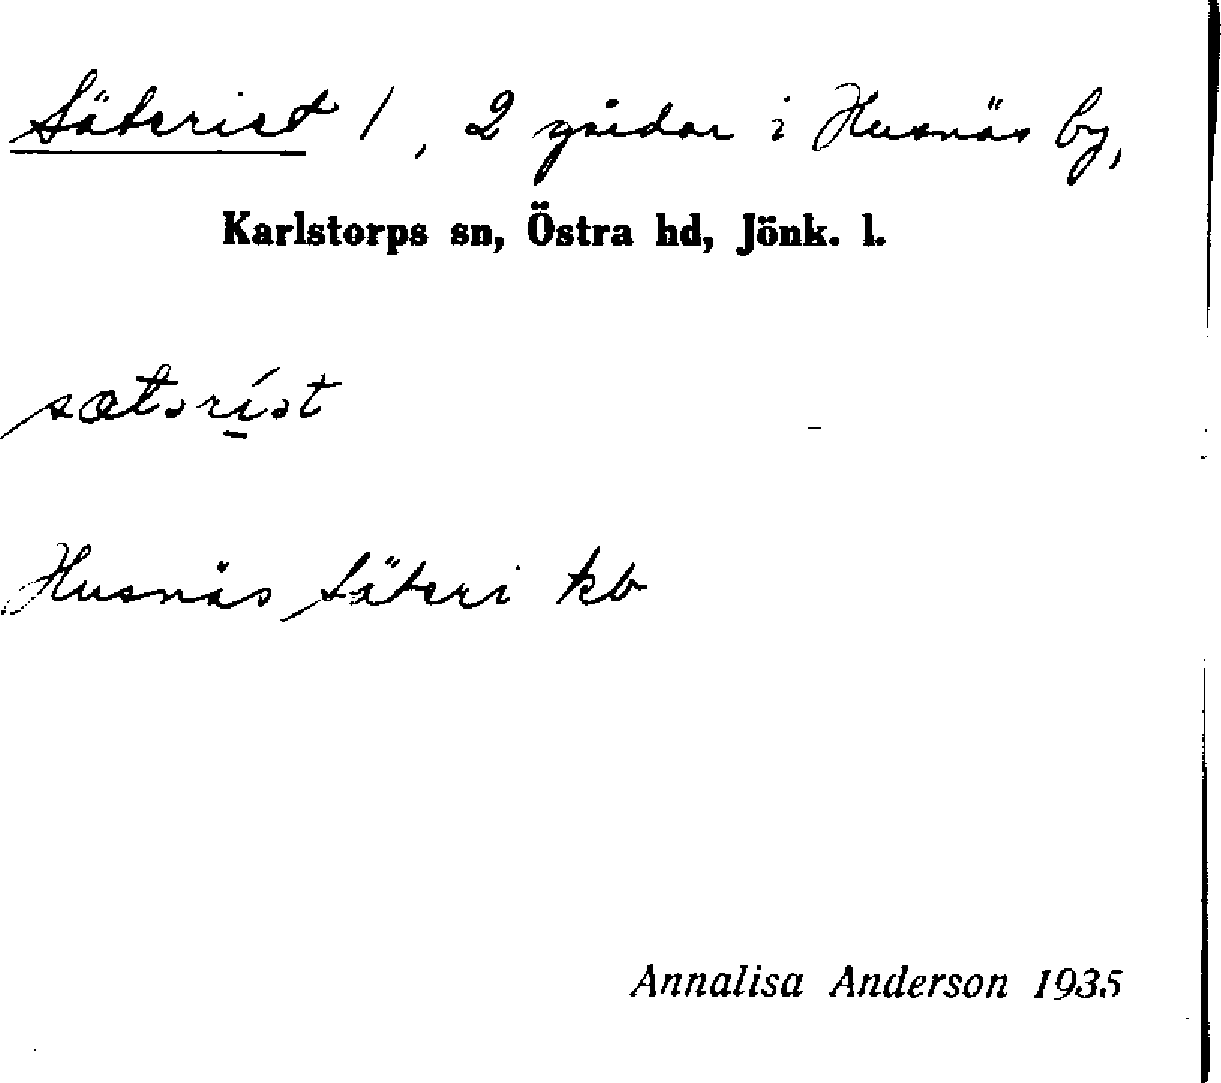 Säteriet /, 2 gårdar i Husnäs by,
Karlstorps sn, Östra hd, Jönk. l.
Husnäs Säteri kb
Annalisa Anderson 1935